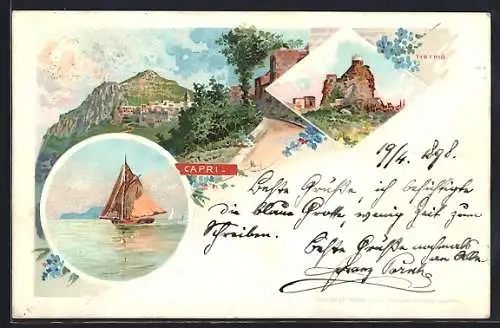 TIBERIO
CAPRI.
19/4. 898.
Beste Grüße, ich besichtigte
die blaue Grotte, wenig Zeit zum
Schreiben.
Beste Grüße nochmals
an Alle
Franz